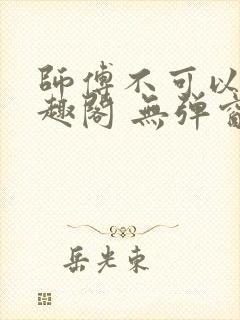 師傅不可以
趣閣 無弹
岳光東